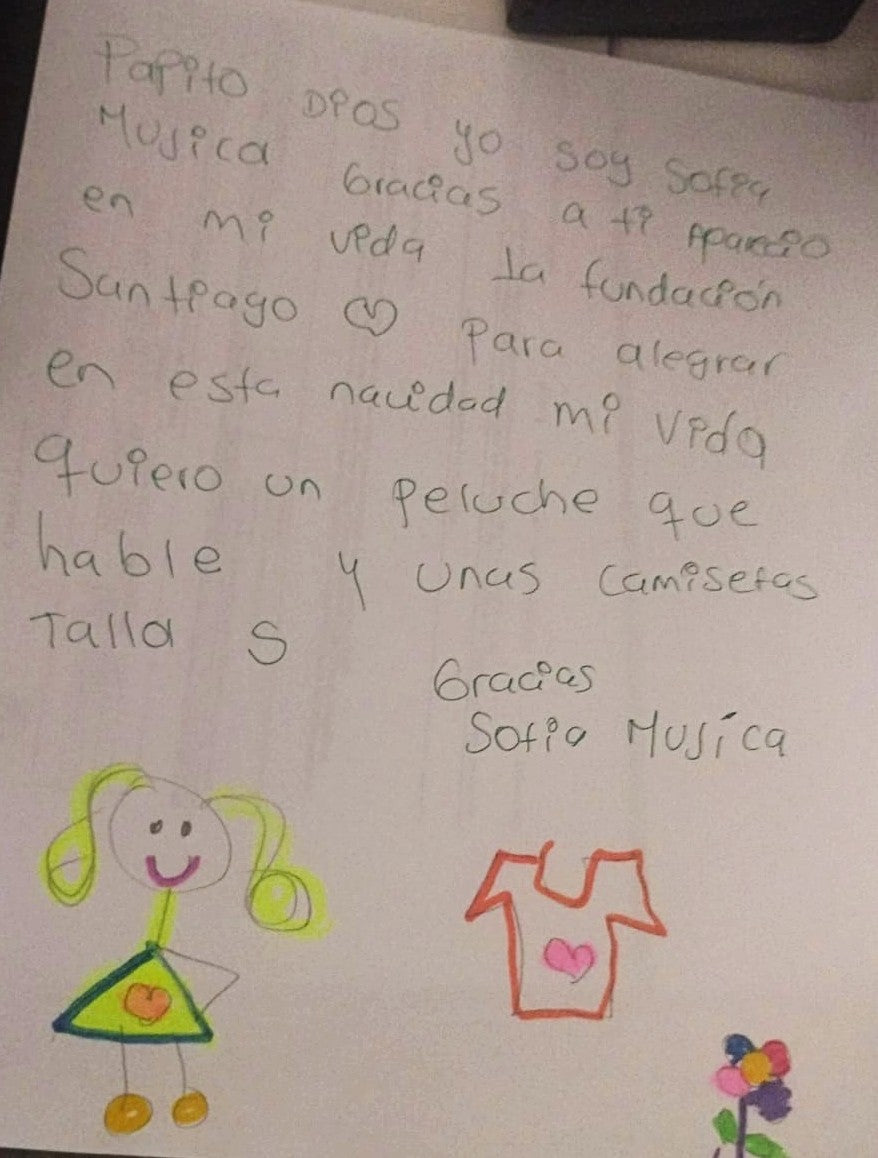 Papito Dios yo soy Sofia
Musica Gracias a ti Aparecio
en mi vida la fundación
Santiago para alegrar
en esta navidad mi vida
quiero un peluche que
hable y unas camisetas
Talla S
Gracias
Sofia Musica